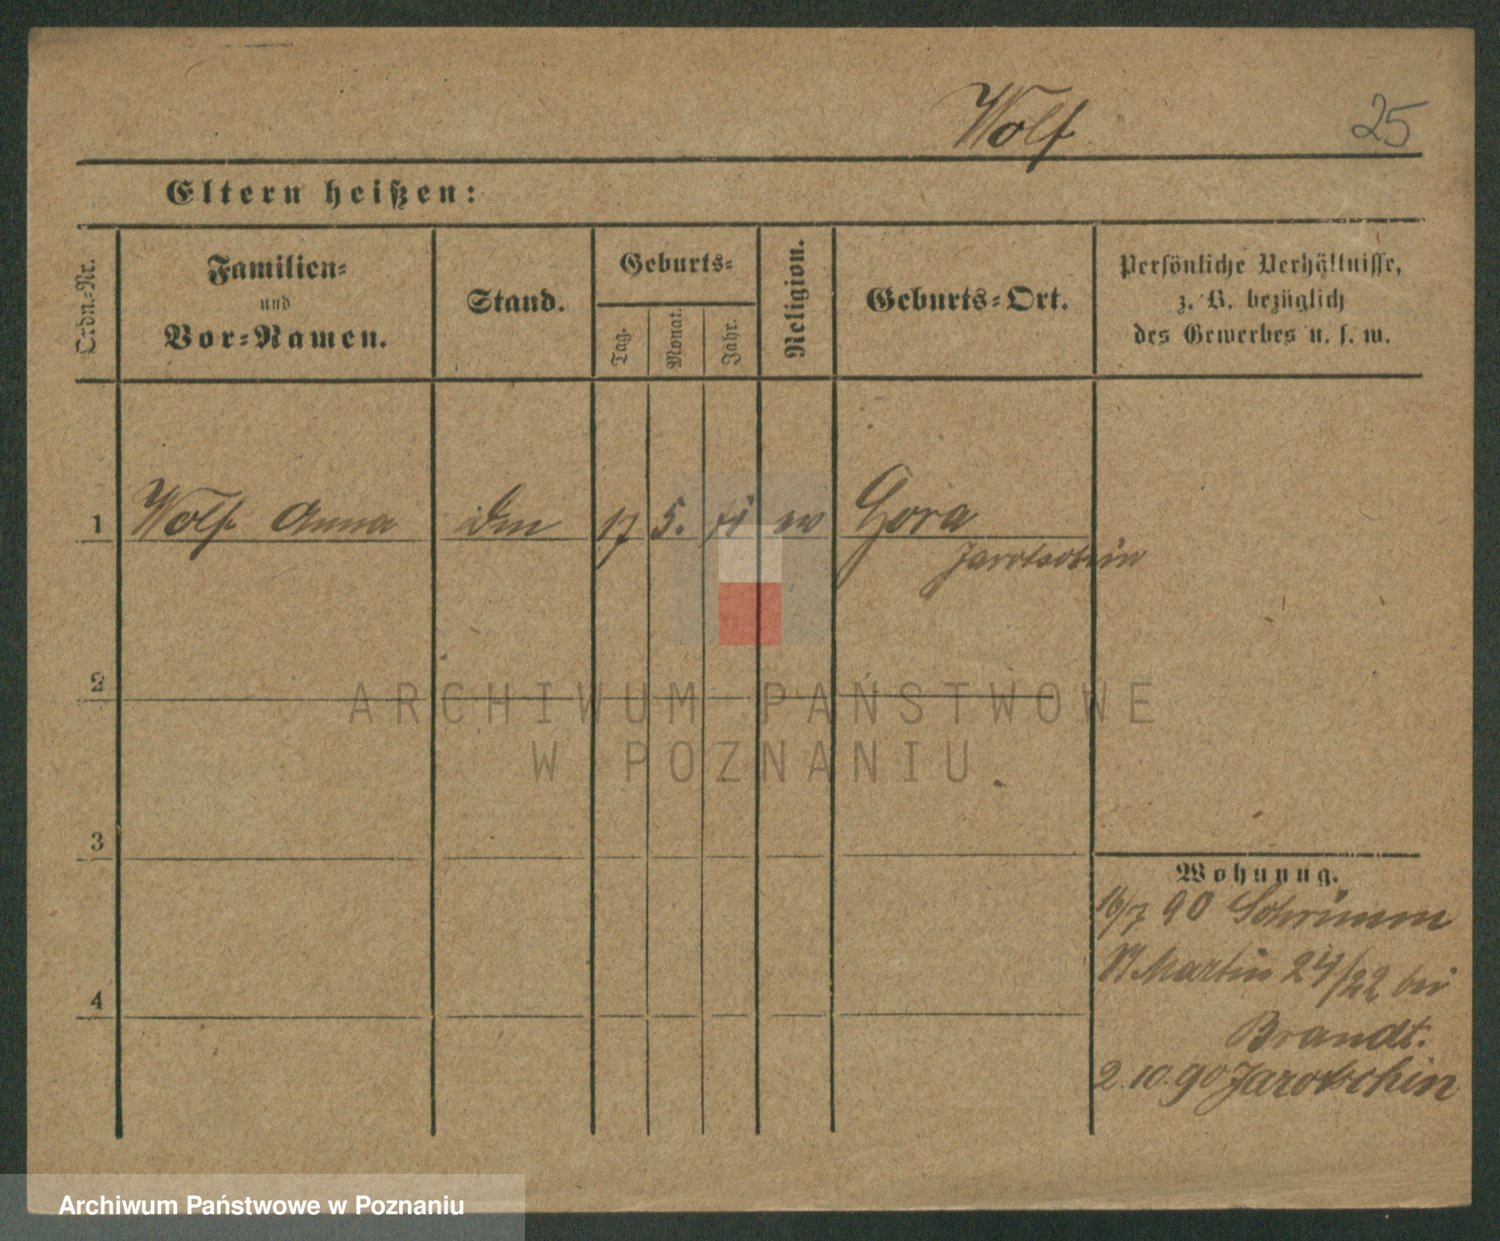 Wolf 25
Eltern heißen:
Ordn.-Nr. Familien- und Vor-Namen. Stand. Geburts- Tag. Monat. Jahr. Religion. Geburts-Ort. Persönliche Verhältnisse, z. B. bezüglich des Gewerbes u. s. w.
1 Wolf Anna 17 5. 71 Gora
Jarotschin
2
ARCHIWUM PAŃSTWOWE
W POZNANIU
3
Wohnung.
16/7 90 Schrimm
St Martin 24/22 bei
Brandt.
4
2.10.90 Jarotschin
Archiwum Państwowe w Poznaniu